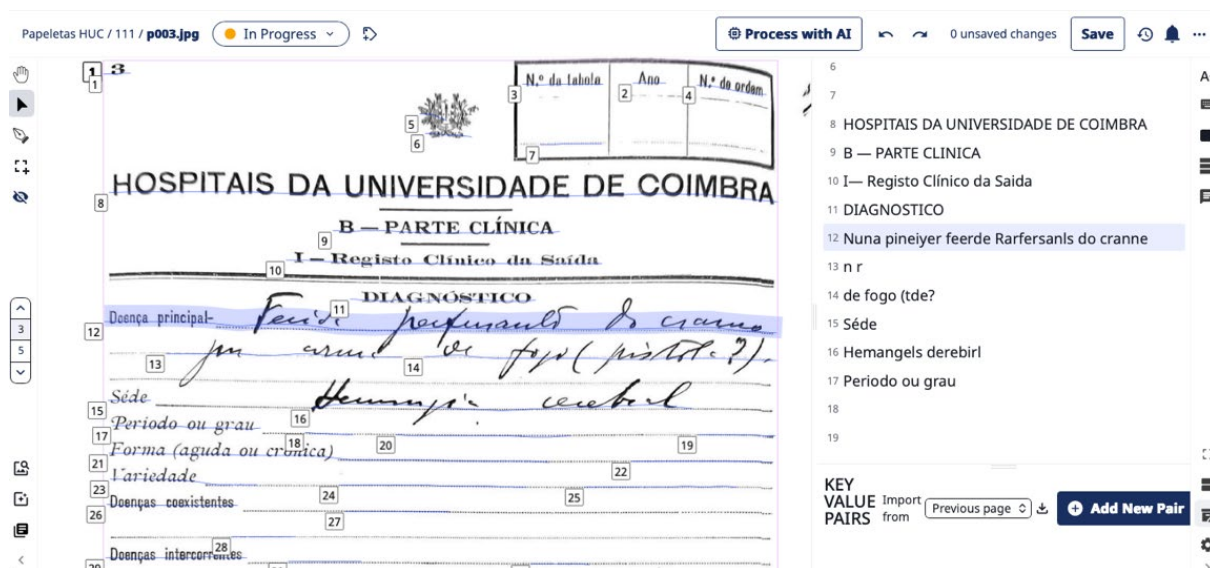 Papeletas HUC / 111 / p003.jpg
In Progress
Process with AI
0 unsaved changes
Save
3
N.º da tabola Ano N.º de ordem
HOSPITAIS DA UNIVERSIDADE DE COIMBRA
B — PARTE CLÍNICA
I — Registo Clínico da Saída
DIAGNÓSTICO
Doença principal- Ferida perfurante do craneo
por arma de fogo (pistola?).
Séde Hemorragia cerebral
Período ou grau
Forma (aguda ou crónica)
Variedade
Doenças coexistentes
Doenças intercorrentes
1
2
3
4
5
6
7
8
9
10
11
12
13
14
15
16
17
18
19
20
21
22
23
24
25
26
27
28
3
5
6
7
8 HOSPITAIS DA UNIVERSIDADE DE COIMBRA
9 B — PARTE CLINICA
10 I— Registo Clínico da Saida
11 DIAGNOSTICO
12 Nuna pineiyer feerde Rarfersanls do cranne
13 n r
14 de fogo (tde?
15 Séde
16 Hemangels derebirl
17 Periodo ou grau
18
19
KEY
VALUE
PAIRS
Import
from
Previous page
Add New Pair